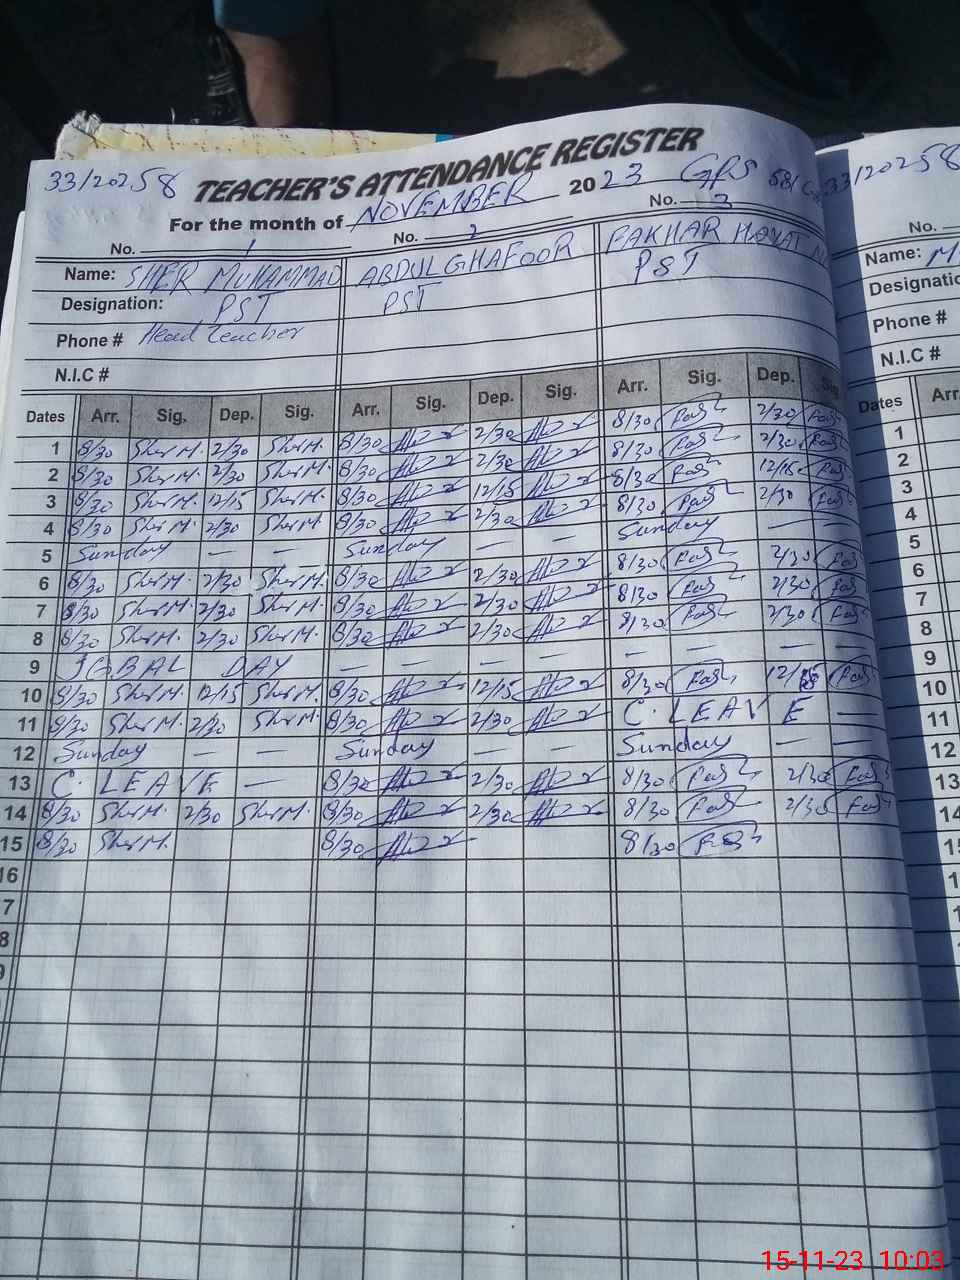 33120258 TEACHER'S ATTENDANCE REGISTER GPS 581 33120258
For the month of NOVEMBER 2023
No. 1 No. 2 No. 3 No.
Name: SHER MUHAMMAD ABDUL GHAFOOR FAKHAR HAYAT Name: M
Designation: PST PST PST Designatio
Phone # Head Teacher Phone #
N.I.C # N.I.C #
Dates Arr. Sig. Dep. Sig. Arr. Sig. Dep. Sig. Arr. Sig. Dep. Sig Dates Arr.
1 8/30 Sher M. 2/30 Sher M. 8/30 2/30 8/30 2/30 1
2 8/30 Sher M. 2/30 Sher M. 8/30 2/30 8/30 2/30 2
3 8/30 Sher M. 12/15 Sher M. 8/30 12/15 8/30 12/15 3
4 8/30 Sher M. 2/30 Sher M. 8/30 2/30 8/30 2/30 4
5 Sunday — — Sunday — — Sunday — — 5
6 8/30 Sher M. 2/30 Sher M. 8/30 2/30 8/30 2/30 6
7 8/30 Sher M. 2/30 Sher M. 8/30 2/30 8/30 2/30 7
8 8/30 Sher M. 2/30 Sher M. 8/30 2/30 8/30 2/30 8
9 IQBAL DAY — — — — — — — — 9
10 8/30 Sher M. 12/15 Sher M. 8/30 12/15 8/30 12/15 10
11 8/30 Sher M. 2/30 Sher M. 8/30 2/30 C. LEAVE — 11
12 Sunday — — Sunday — — Sunday — — 12
13 C. LEAVE — 8/30 2/30 8/30 2/30 13
14 8/30 Sher M. 2/30 Sher M. 8/30 2/30 8/30 2/30 14
15 8/30 Sher M. 8/30 8/30 15
16
7
8
9
15-11-23 10:03